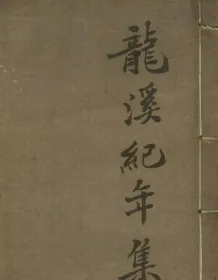 龍溪紀年集